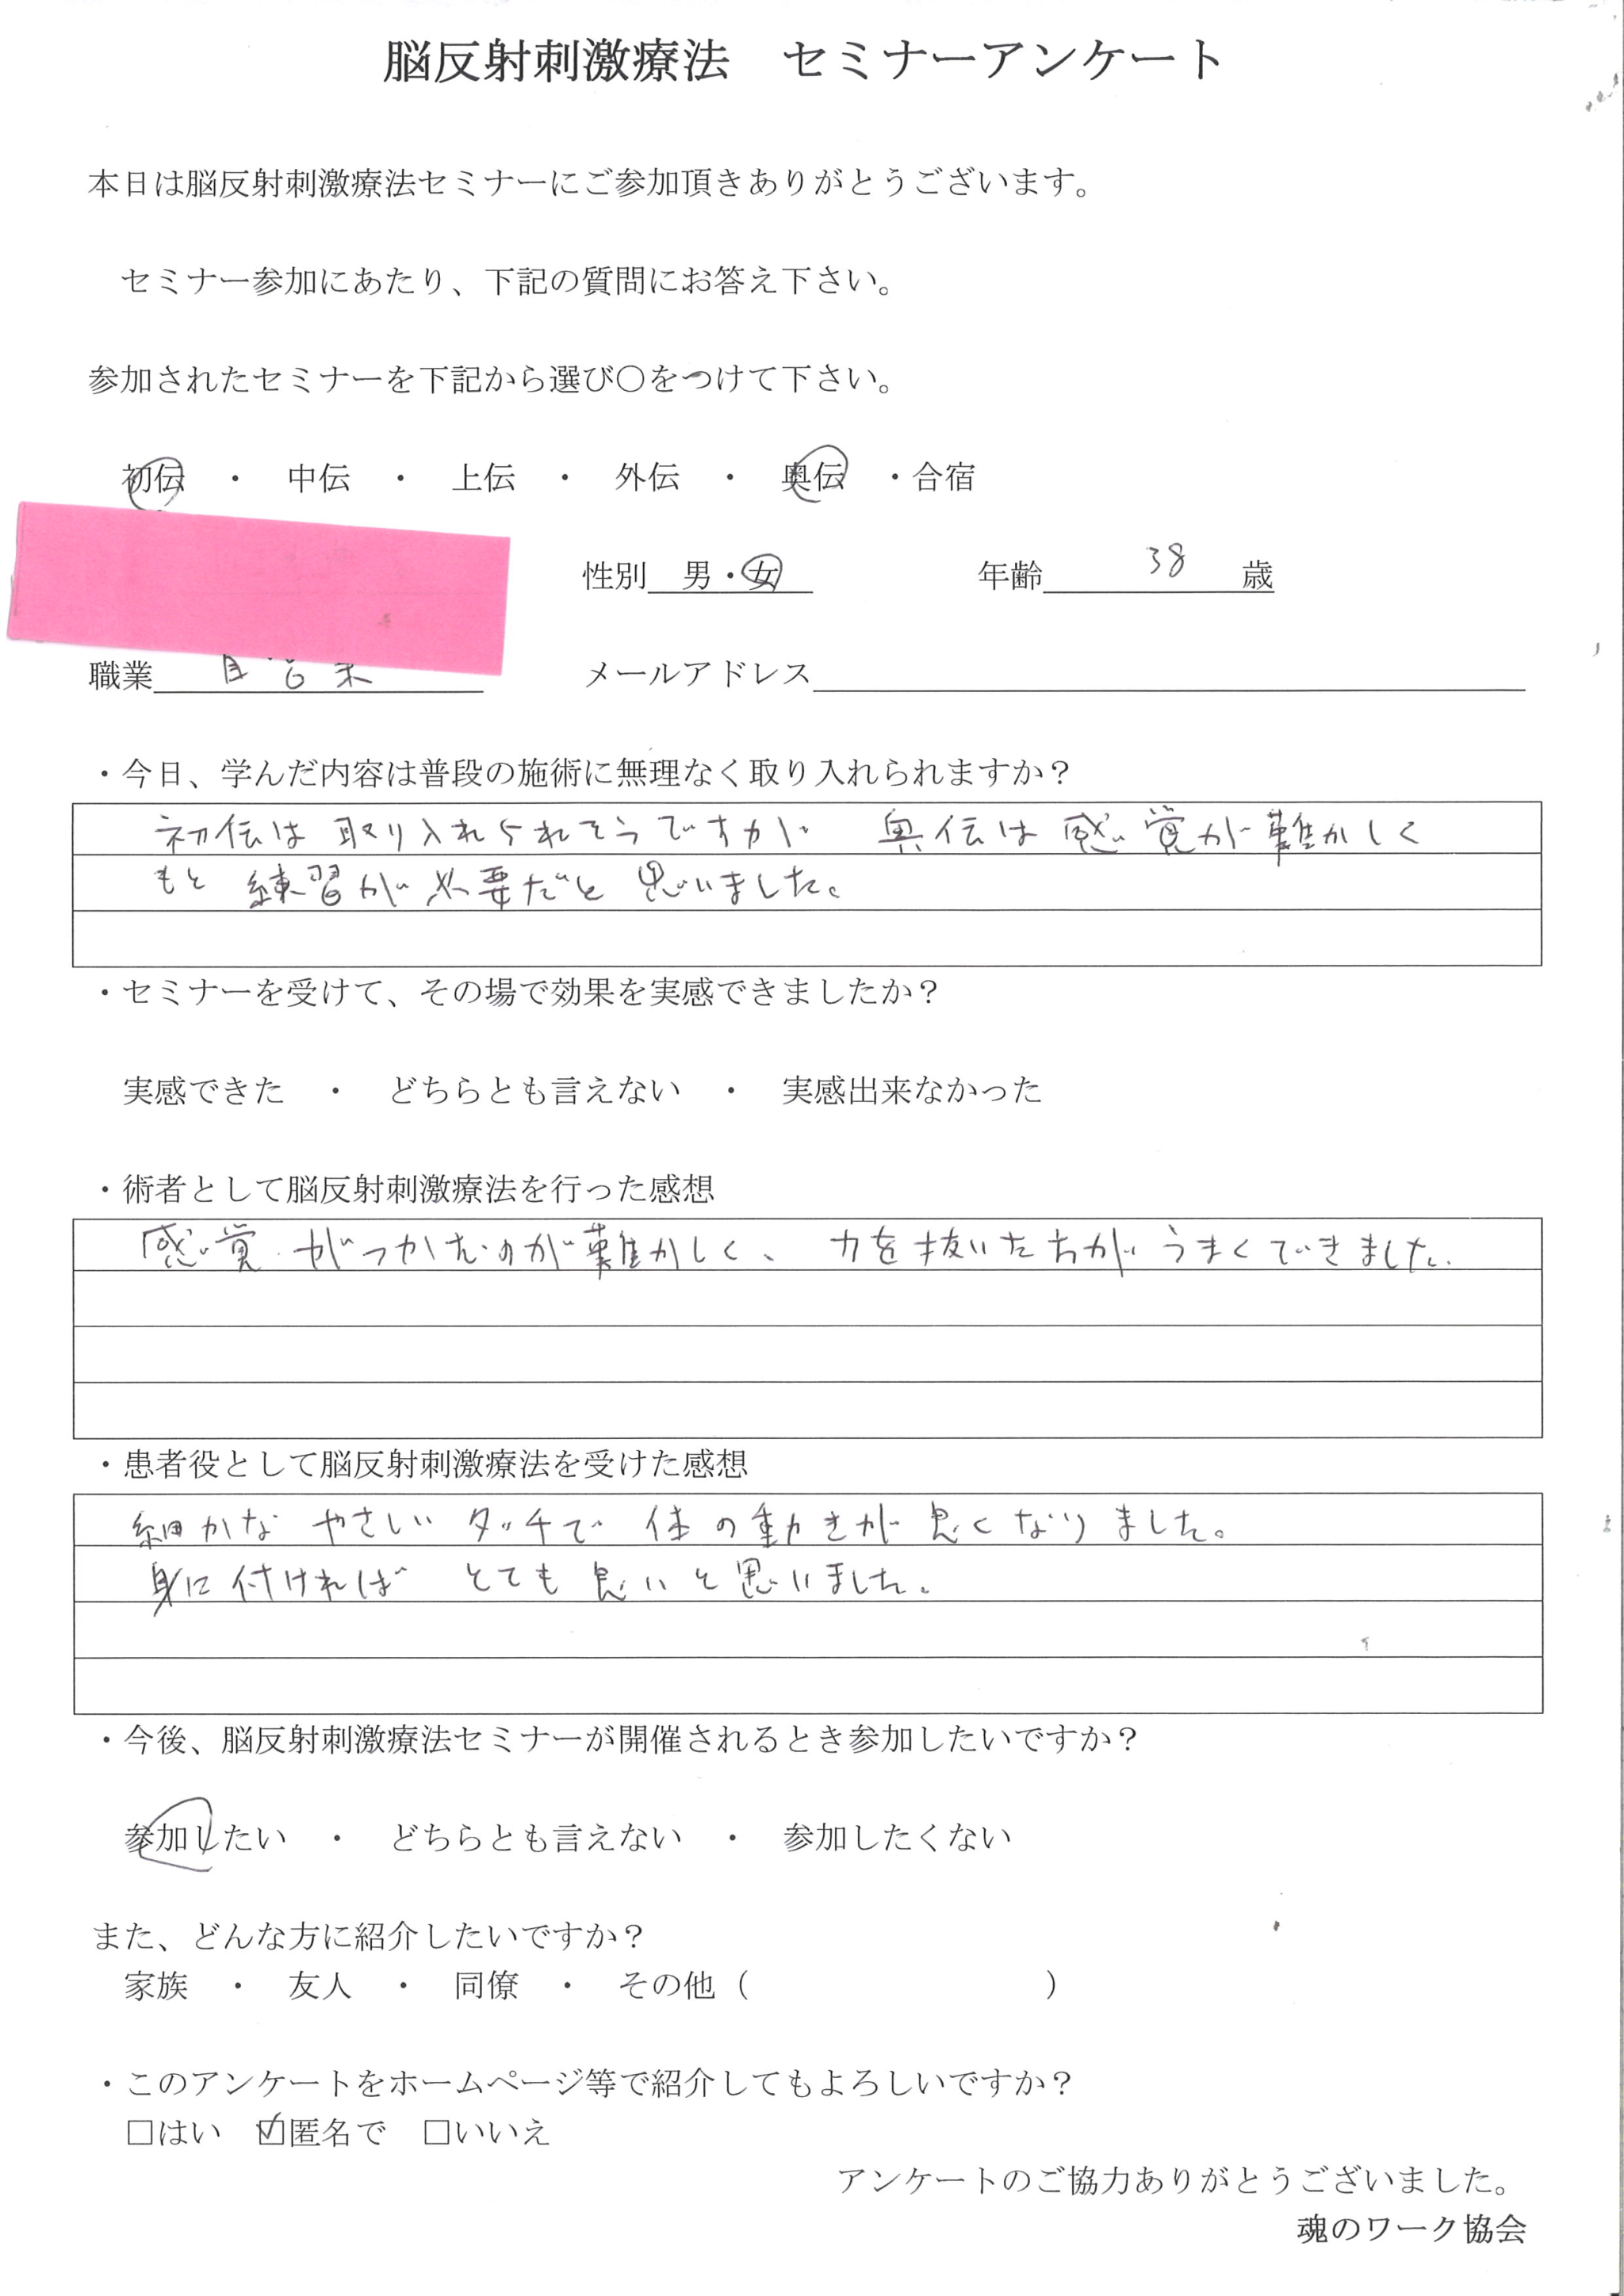 脳反射刺激療法　セミナーアンケート
本日は脳反射刺激療法セミナーにご参加頂きありがとうございます。
セミナー参加にあたり、下記の質問にお答え下さい。
参加されたセミナーを下記から選び〇をつけて下さい。
初伝　・　中伝　・　上伝　・　外伝　・　奥伝　・合宿
性別　男・女　年齢　38　歳
職業　自営業　メールアドレス
・今日、学んだ内容は普段の施術に無理なく取り入れられますか？
初伝は取り入れられそうですが　奥伝は感覚が難かしく
もと練習が必要だと思いました。
・セミナーを受けて、その場で効果を実感できましたか？
実感できた　・　どちらとも言えない　・　実感出来なかった
・術者として脳反射刺激療法を行った感想
感覚がつかむのが難かしく、力を抜いた方がうまくできました。
・患者役として脳反射刺激療法を受けた感想
細かなやさしいタッチで体の動きが良くなりました。
身に付ければ　とても良いと思いました。
・今後、脳反射刺激療法セミナーが開催されるとき参加したいですか？
参加したい　・　どちらとも言えない　・　参加したくない
また、どんな方に紹介したいですか？
家族　・　友人　・　同僚　・　その他（　　　　　　　　　）
・このアンケートをホームページ等で紹介してもよろしいですか？
□はい　☑匿名で　□いいえ
アンケートのご協力ありがとうございました。
魂のワーク協会